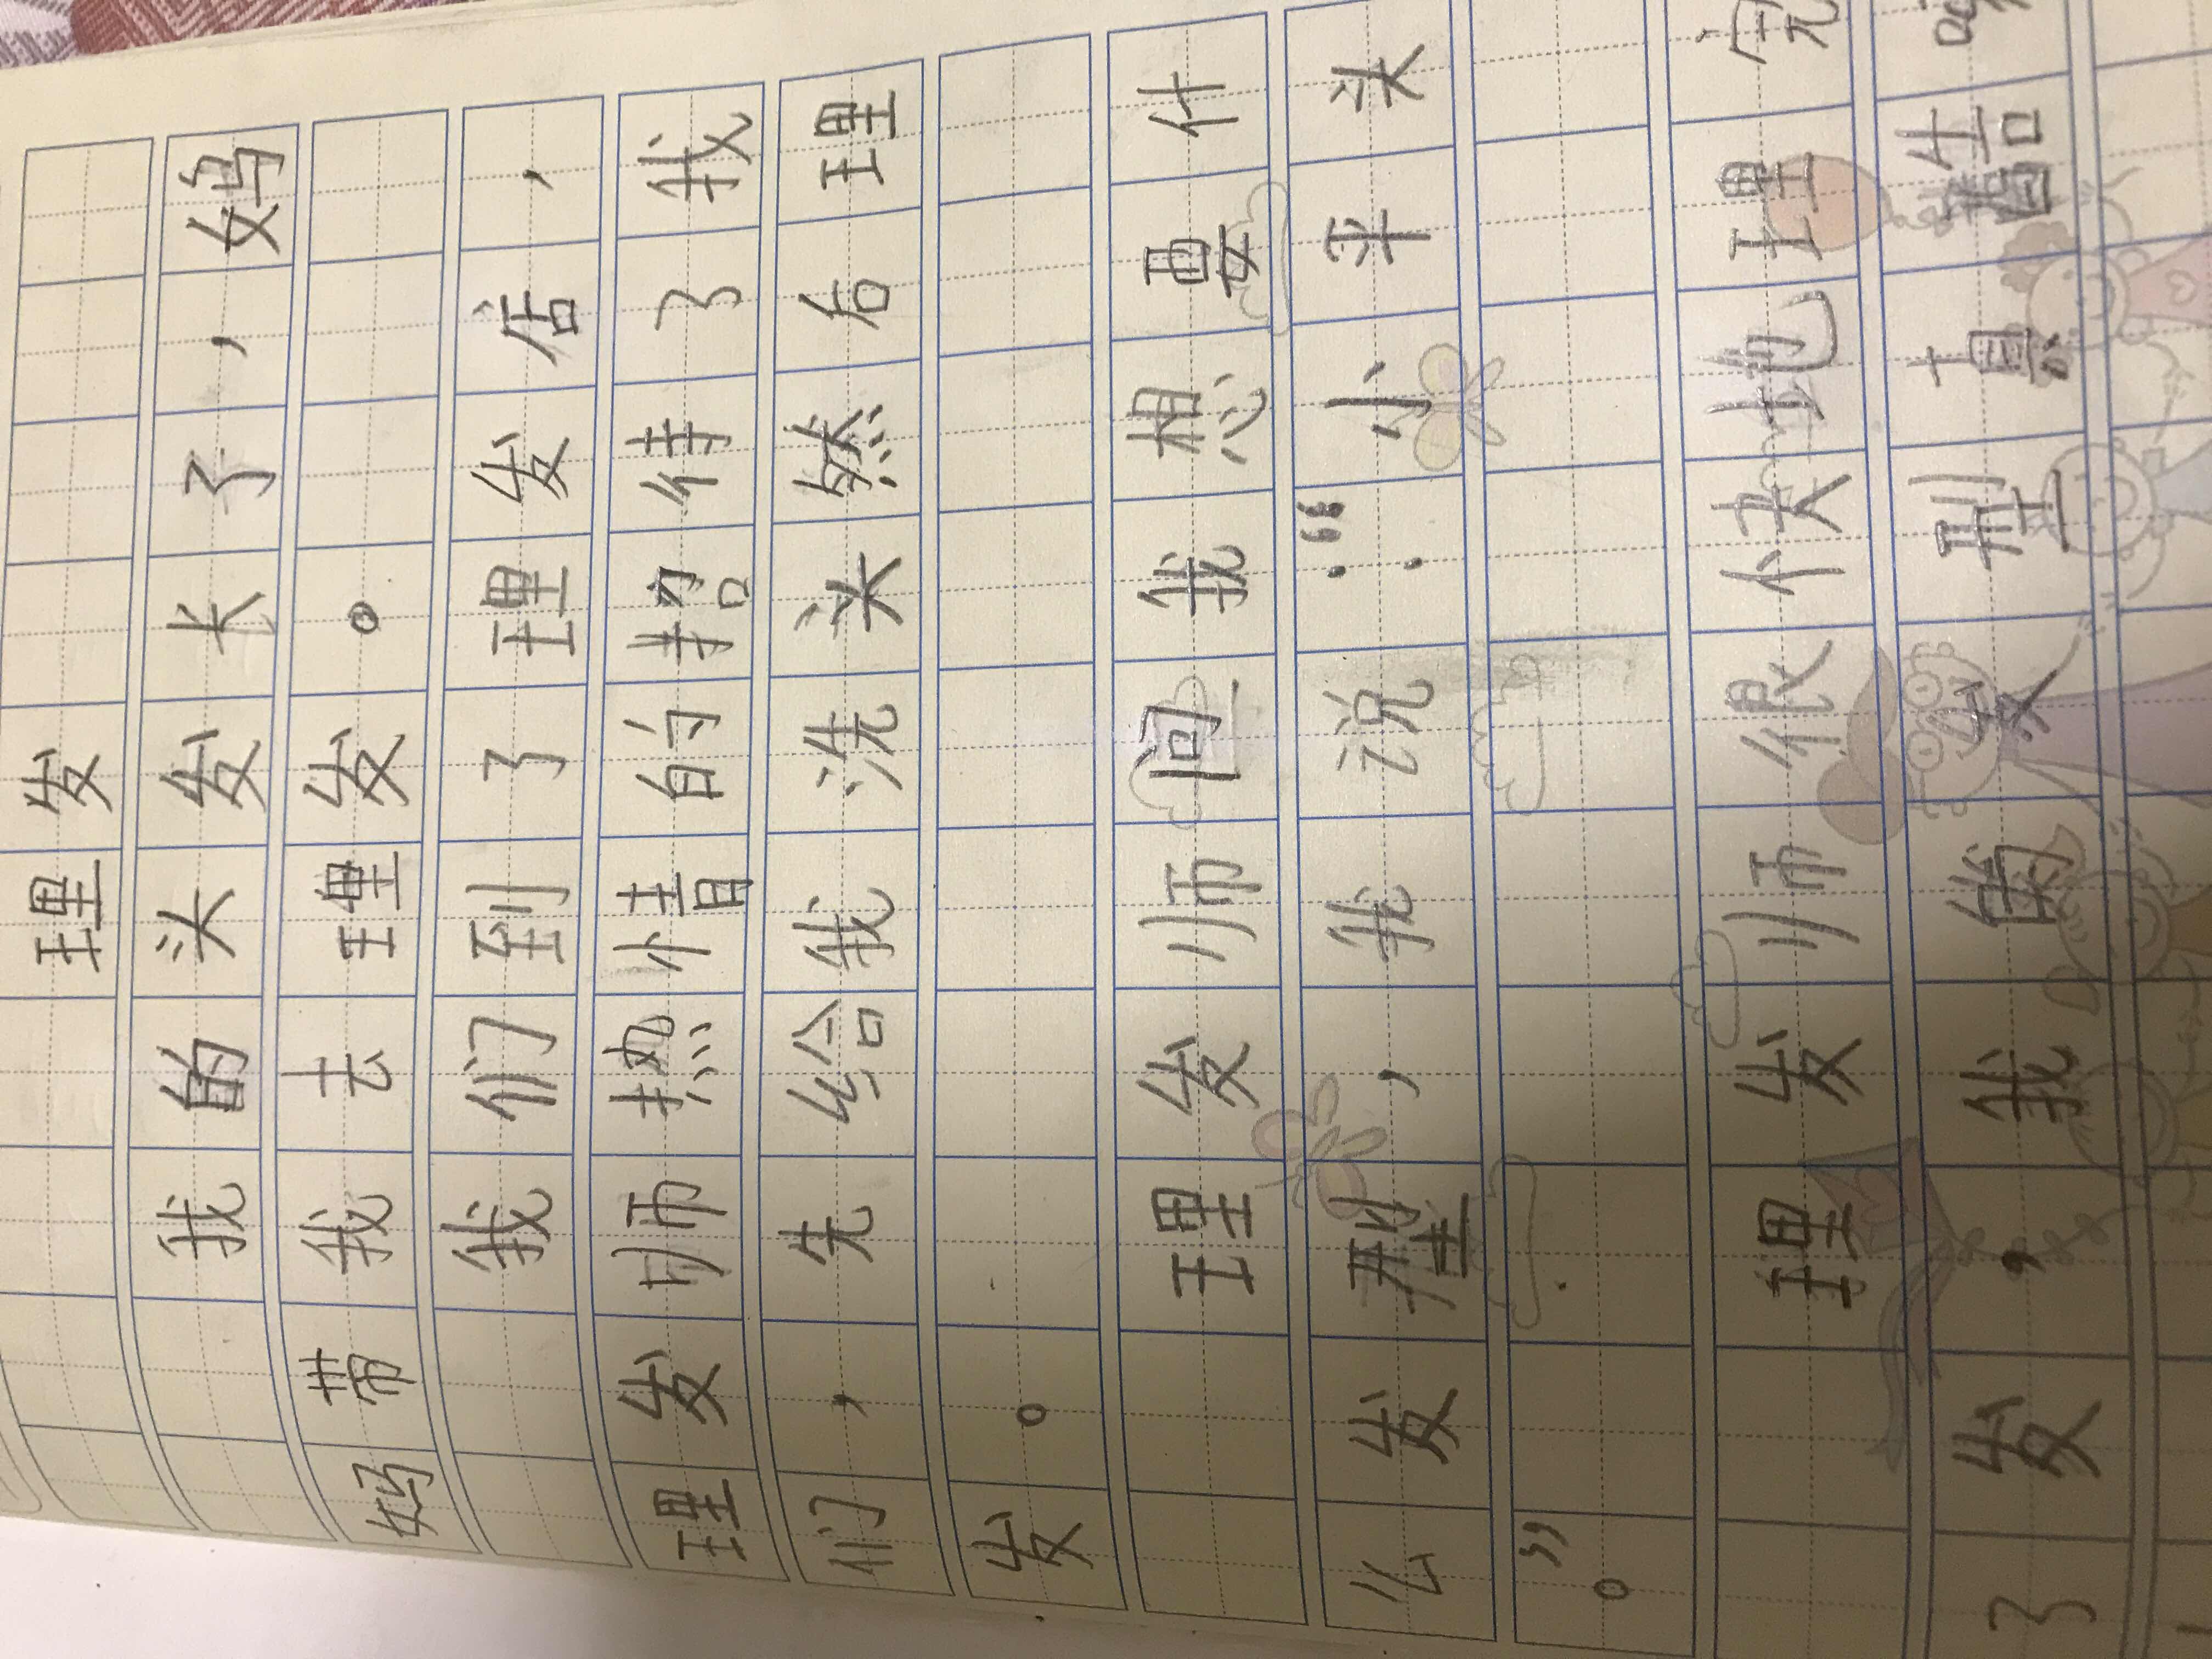 理发
我的头发长了，妈
妈带我去理发。
我们到了理发店，
理发师热情的招待了我
们，先给我洗头然后理
发。
理发师问我想要什
么发型，我说：“小平头
”。
理发师很快地理完
了发，我的发型真酷